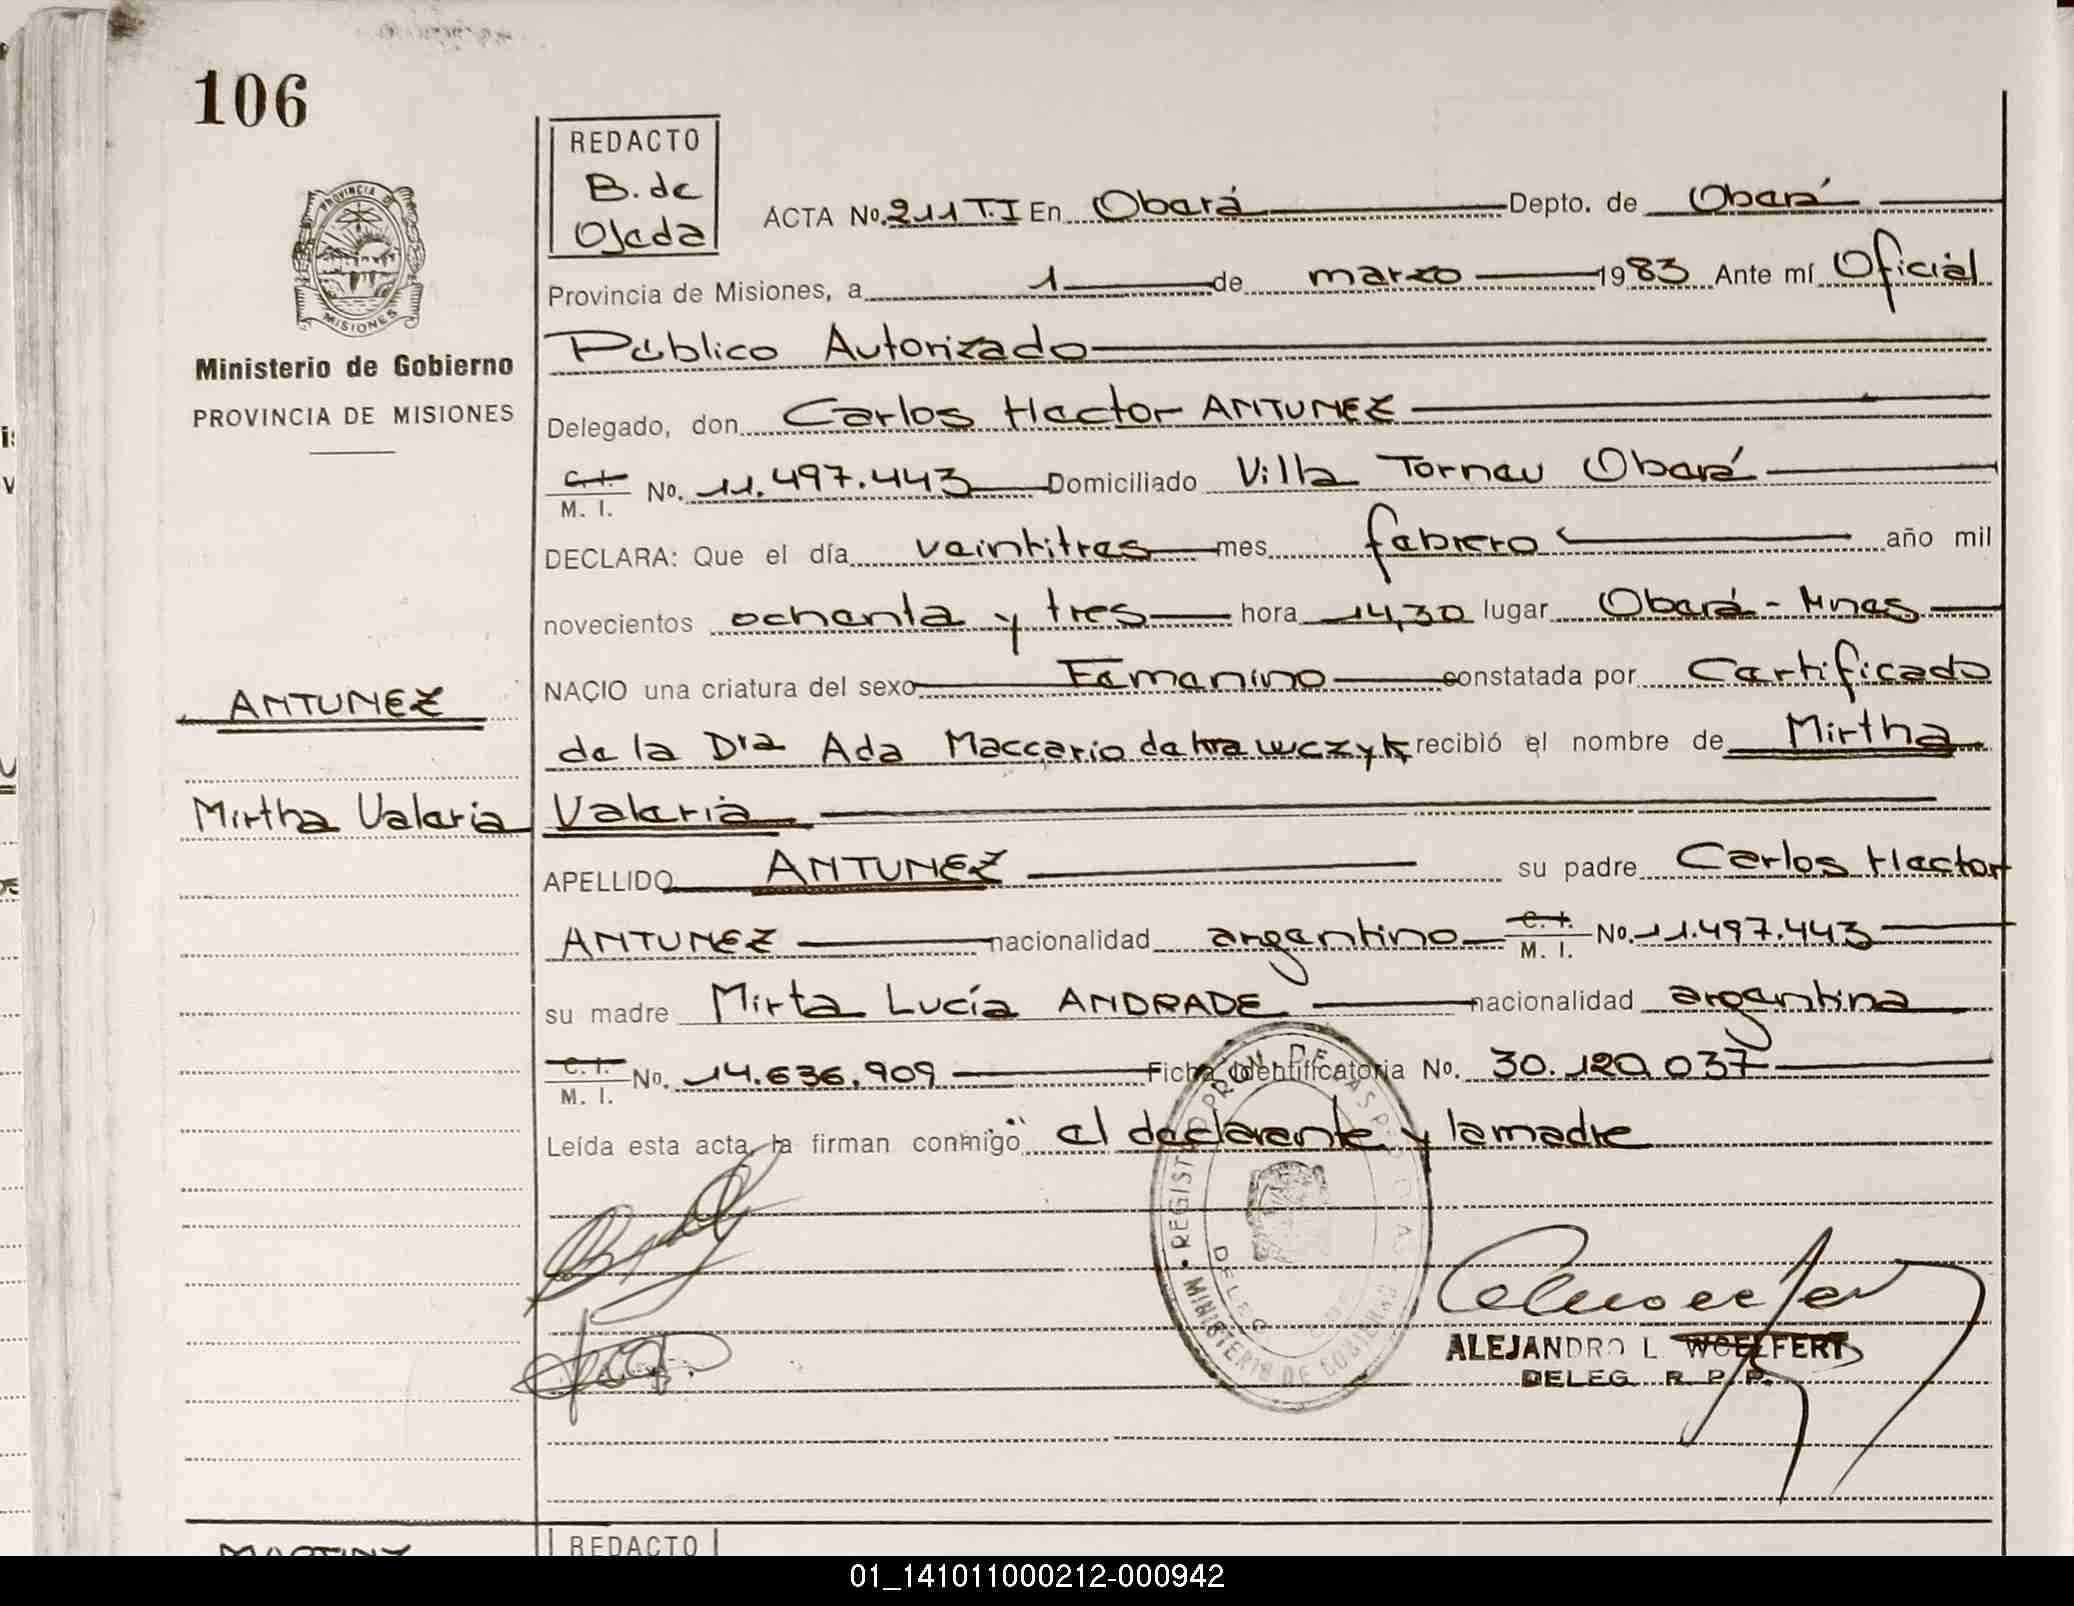 106
REDACTO
B. de
Ojeda
ACTA No. 211 T.I En Oberá Depto. de Oberá
Provincia de Misiones, a 1 de marzo 1983 Ante mí Oficial
Público Autorizado
PROVINCIA DE
MISIONES
Ministerio de Gobierno
PROVINCIA DE MISIONES
Delegado, don Carlos Hector ANTUNEZ
C. I.
M. I. No. 11.497.443 Domiciliado Villa Torneu Oberá
DECLARA: Que el día veintitres mes febrero año mil
novecientos ochenta y tres hora 14,30 lugar Oberá - Mnes
NACIO una criatura del sexo Femenino constatada por Certificado
de la Dra Ada Maccario de Krawczyk recibió el nombre de Mirtha
Valeria
ANTUNEZ
Mirtha Valeria
APELLIDO ANTUNEZ su padre Carlos Hector
ANTUNEZ nacionalidad argentino C. I.
M. I. No. 11.497.443
su madre Mirta Lucía ANDRADE nacionalidad argentina
C. I.
M. I. No. 14.636.909 Ficha Identificatoria No. 30.120.037
Leída esta acta, la firman conmigo el declarante y la madre
REGISTRO PROV. DE LAS PERSONAS
MINISTERIO DE GOBIERNO
ALEJANDRO L. WOELFERT
DELEG. R. P. P.
REDACTO
01_141011000212-000942